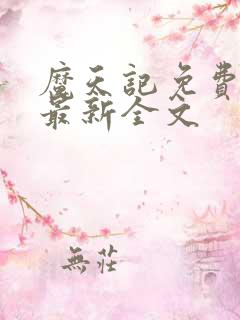 魔天記免費
最新全文
無莊